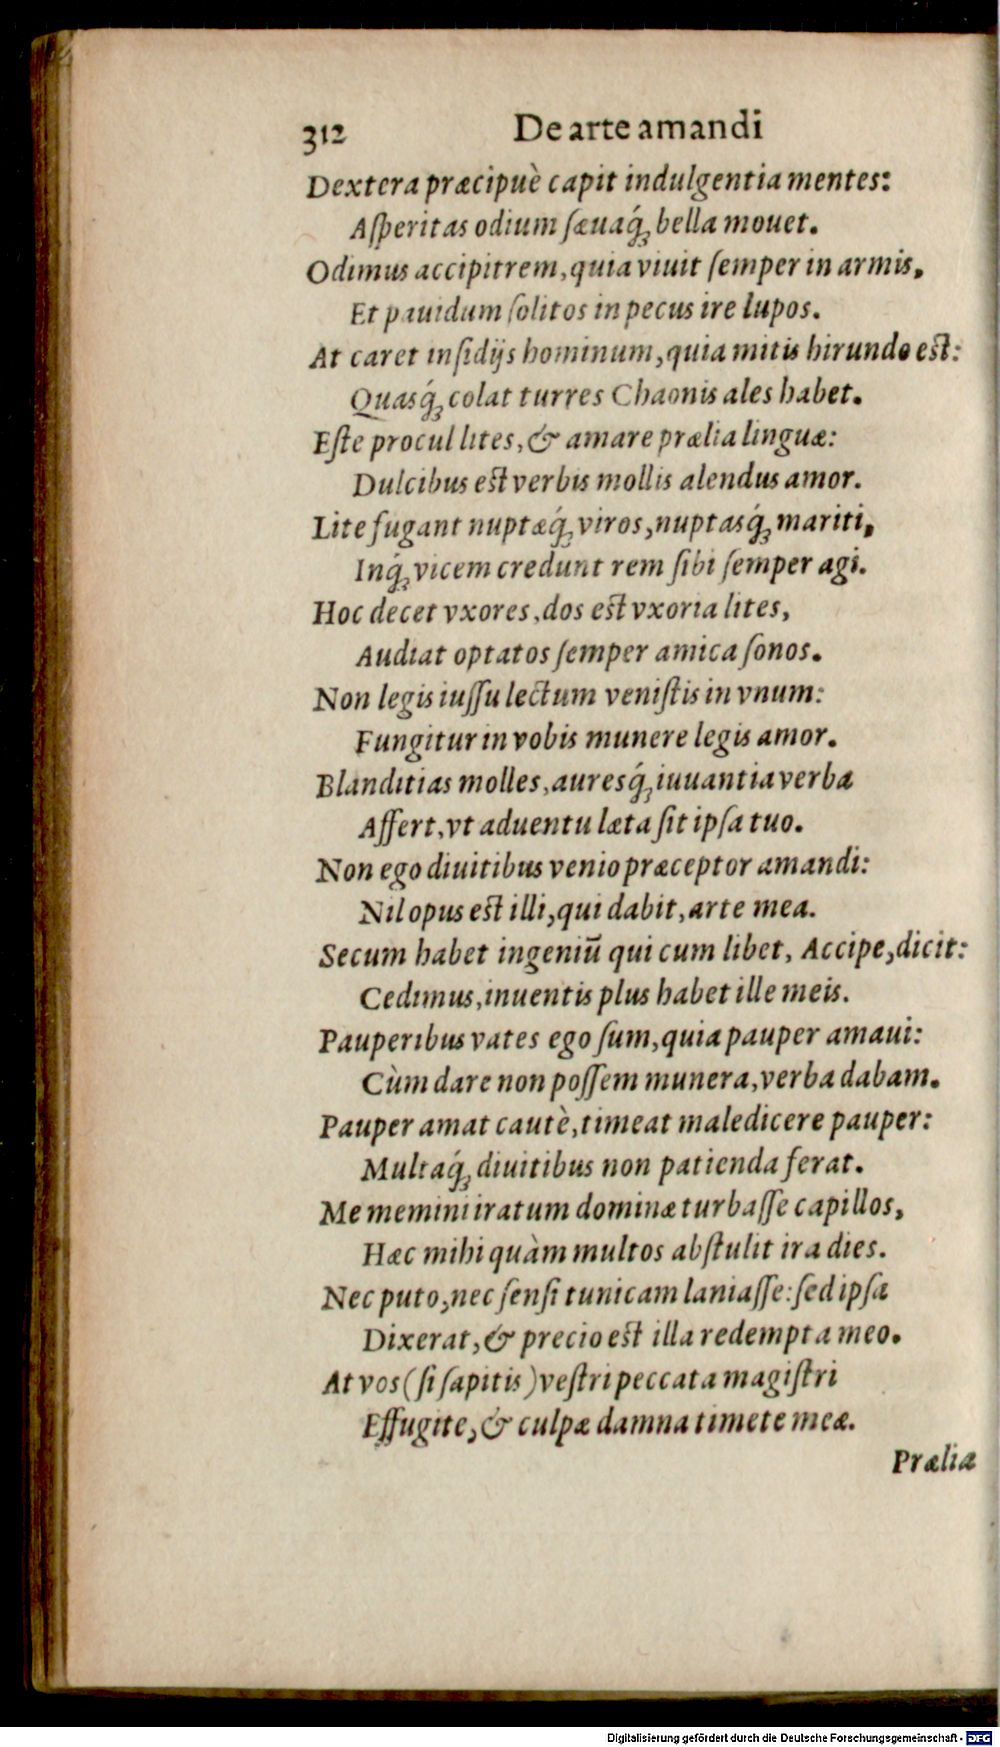 312 De arte amandi
Dextera præcipuè capit indulgentia mentes:
Aſperitas odium ſæuaq́; bella mouet.
Odimus accipitrem, quia viuit ſemper in armis,
Et pauidum ſolitos in pecus ire lupos.
At caret inſidijs hominum, quia mitis hirundo est:
Quasq́; colat turres Chaonis ales habet.
Eſte procul lites, & amare prælia linguæ:
Dulcibus est verbis mollis alendus amor.
Lite fugant nuptæq́; viros, nuptasq́; mariti,
Inq́; vicem credunt rem ſibi ſemper agi.
Hoc decet vxores, dos est vxoria lites,
Audiat optatos ſemper amica ſonos.
Non legis iuſſu lectum veniſtis in vnum:
Fungitur in vobis munere legis amor.
Blanditias molles, auresq́; iuuantia verba
Affert, vt aduentu læta ſit ipſa tuo.
Non ego diuitibus venio præceptor amandi:
Nil opus est illi, qui dabit, arte mea.
Secum habet ingeniū qui cum libet, Accipe, dicit:
Cedimus, inuentis plus habet ille meis.
Pauperibus vates ego ſum, quia pauper amaui:
Cùm dare non poſſem munera, verba dabam.
Pauper amat cautè, timeat maledicere pauper:
Multaq́; diuitibus non patienda ferat.
Me memini iratum dominæ turbaſſe capillos,
Hæc mihi quàm multos abſtulit ira dies.
Nec puto, nec ſenſi tunicam laniaſſe: ſed ipſa
Dixerat, & precio est illa redempta meo.
At vos (ſi ſapitis) veſtri peccata magiſtri
Effugite, & culpæ damna timete meæ.
Prælia
Digitalisierung gefördert durch die Deutsche Forschungsgemeinschaft - DFG